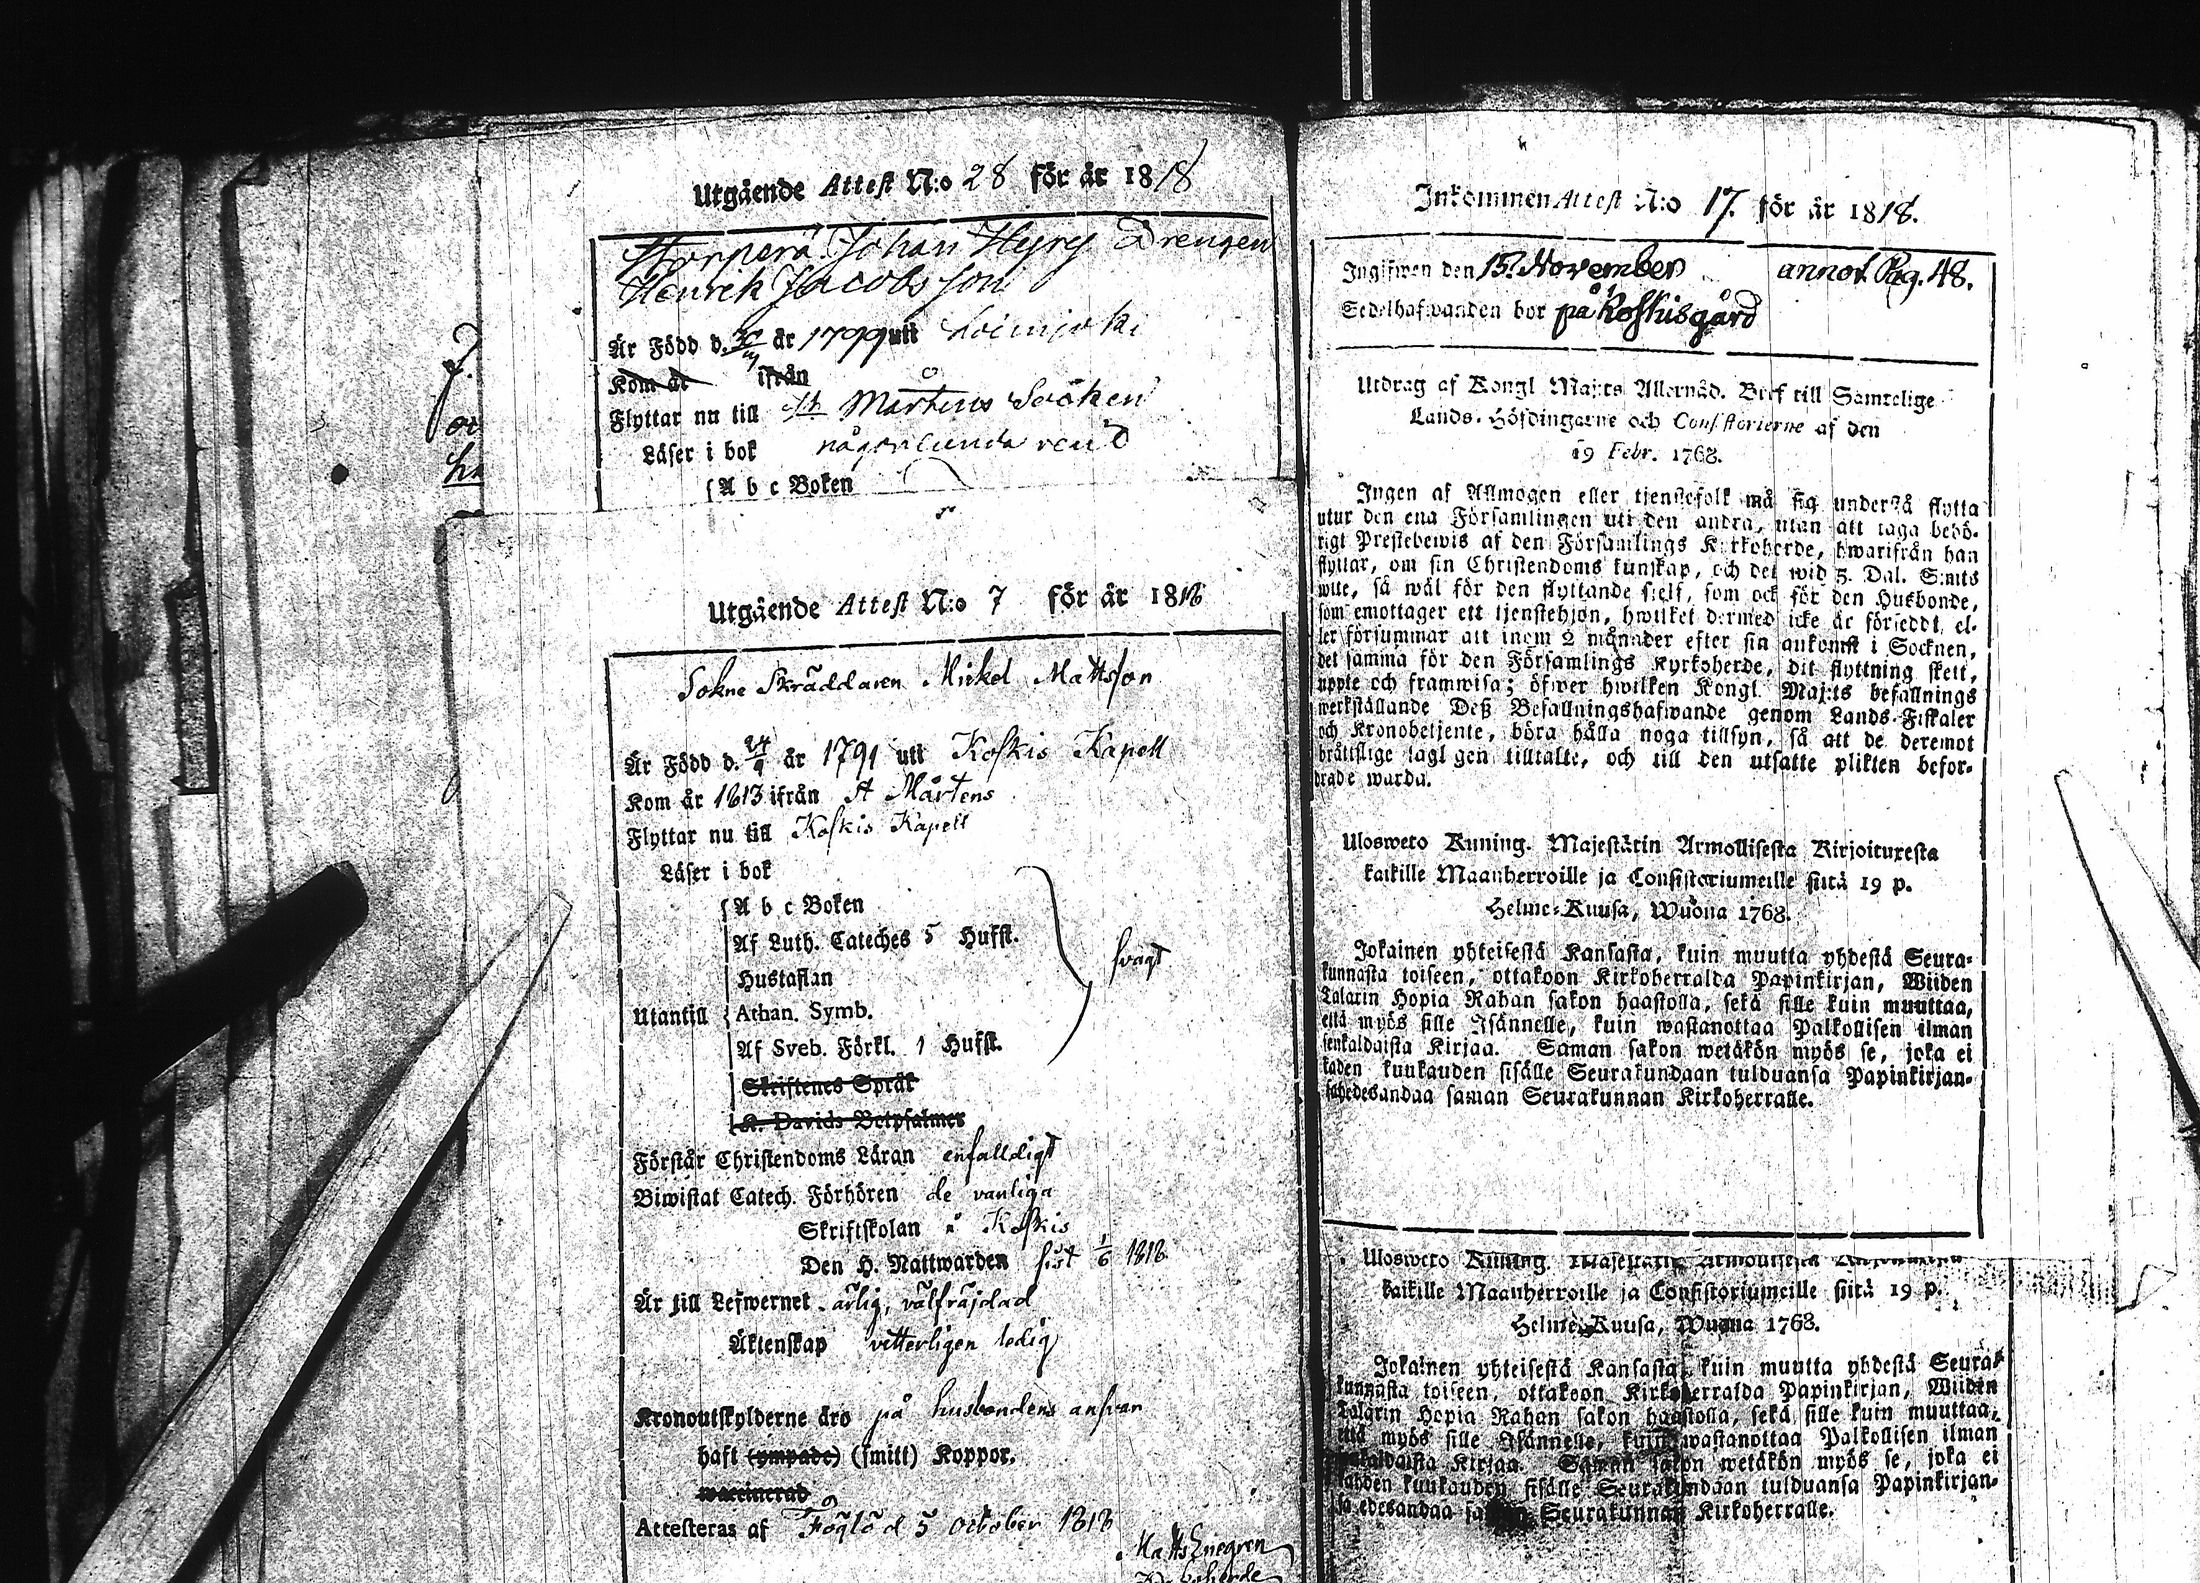 Utgående Attest N:o 28 för år 1818
Torparä Johan Hyry Drengen
Henrik Jacobsson
Är Född d. 30 år 1799 uti Loimjoki
Kom år ifrån
Flyttar nu till St Mårtens Socken
Läser i bok någorlunda rent
A b c Boken
Utgående Attest N:o 7 för år 1818
Sokne Skräddaren Mickel Mattsson
Är Född d. 24/9 år 1791 uti Koskis Kapell
Kom år 1813 ifrån St Mårtens
Flyttar nu till Koskis Kapell
Läser i bok
A b c Boken
Af Luth. Cateches 5 Hufst.
Hustaflan
svagt
Utantill Athan. Symb.
Af Sveb. Förkl. 1 Hufst.
Skriftenes Språk
K. Davids Botpsalmer
Förstår Christendoms Läran enfalldigt
Biwistat Catech. Förhören de vanliga
Skriftskolan i Koskis
Den H. Nattwarden sist 1/6 1818
Är till Lefwernet ärlig, välfräjdad
Äktenskap vitterligen ledig
Kronoutskylderne äro på husbondens ansvar
haft (ympade) (smitt) Koppor.
waccinerad
Attesteras af Föglö d 5 october 1818
Matts Enegren
Kyrkoherde
Inkommen Attest N:o 17. för år 1818.
Ingifwen den 15. November annot. Pag. 48.
Sedelhafwanden bor på Koskisgård
Utdrag af Kongl Maj:ts Allernåd. Bref till Samtelige
Lands-Höfdingarne och Consistorierne af den
19 Febr. 1768.
Ingen af Allmogen eller tjenstefolk må sig understå flytta
utur den ena Församlingen uti den andra, utan att taga behö-
rigt Prestebewis af den Församlings Kyrkoherde, hwarifrån han
flyttar, om sin Christendoms kunskap, och det wid 5. Dal. S:mts
wite, så wäl för den flyttande sjelf, som ock för den Husbonde,
som emottager ett tjenstehjon, hwilket dermed icke är försedt, el-
ler försummar att inom 2 månader efter sin ankomst i Socknen,
det samma för den Församlings Kyrkoherde, dit flyttning skett,
uppte och framwisa; öfwer hwilken Kongl. Maj:ts befallnings
werkställande Deß Befallningshafwande genom Lands-Fiskaler
och Kronobetjente, böra hålla noga tillsyn, så att de deremot
bråttslige lagl gen tilltalte, och till den utsatte plikten befor-
drade warda.
Ulosweto Kuning. Majestätin Armollisesta Kirjoituxesta
kaikille Maanherroille ja Consistoriumeille siitä 19 p.
Helme-Kuusa, Wuona 1768.
Jokainen yhteisestä Kansasta, kuin muutta yhdestä Seura-
kunnasta toiseen, ottakoon Kirkoherralda Papinkirjan, Wiiden
Talarin Hopia Rahan sakon haastolla, sekä sille kuin muuttaa,
että myös sille Isännelle, kuin wastanottaa Palkollisen ilman
senkaldaista Kirjaa. Saman sakon wetäkön myös se, joka ei
kaden kuukauden sisälle Seurakundaan tulduansa Papinkirjan-
sa edesandaa saman Seurakunnan Kirkoherralle.
Ulosweto Kuning. Majestätin Armollisesta Kirjoituxesta
kaikille Maanherroille ja Consistoriumeille siitä 19 p.
Helme-Kuusa, Wuona 1768.
Jokainen yhteisestä Kansasta, kuin muutta yhdestä Seura-
kunnasta toiseen, ottakoon Kirkoherralda Papinkirjan, Wiiden
Talarin Hopia Rahan sakon haastolla, sekä sille kuin muuttaa,
että myös sille Isännelle, kuin wastanottaa Palkollisen ilman
senkaldaista Kirjaa. Saman sakon wetäkön myös se, joka ei
kahden kuukauden sisälle Seurakundaan tulduansa Papinkirjan-
sa edesandaa saman Seurakunnan Kirkoherralle.